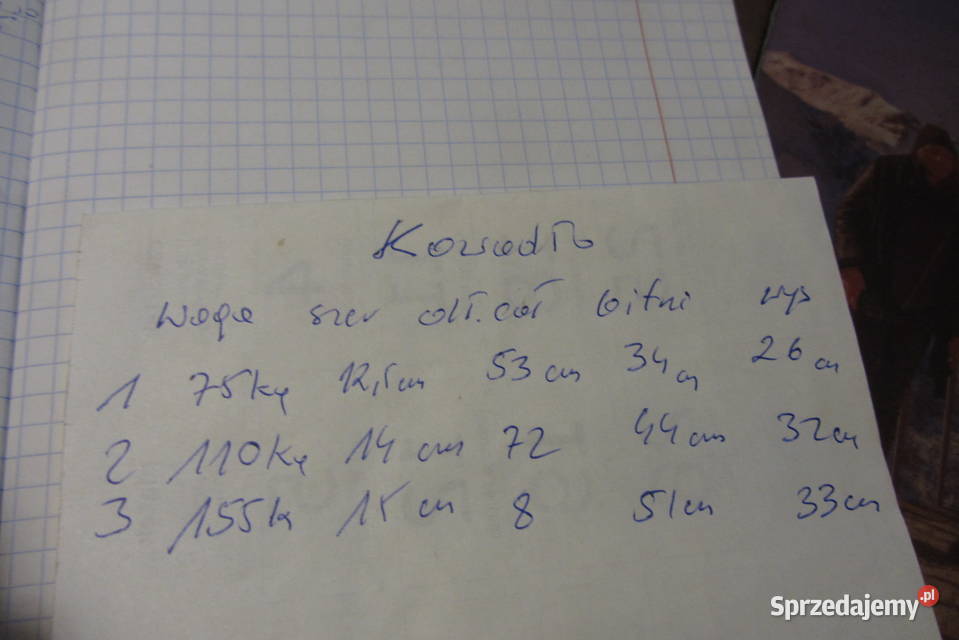 Kowadło
waga szer dł.cał bitni wys
1 75kg 12,5cm 53cm 34cm 26cm
2 110kg 14cm 72 44cm 32cm
3 155k 15cm 8 51cm 33cm
Sprzedajemy.pl